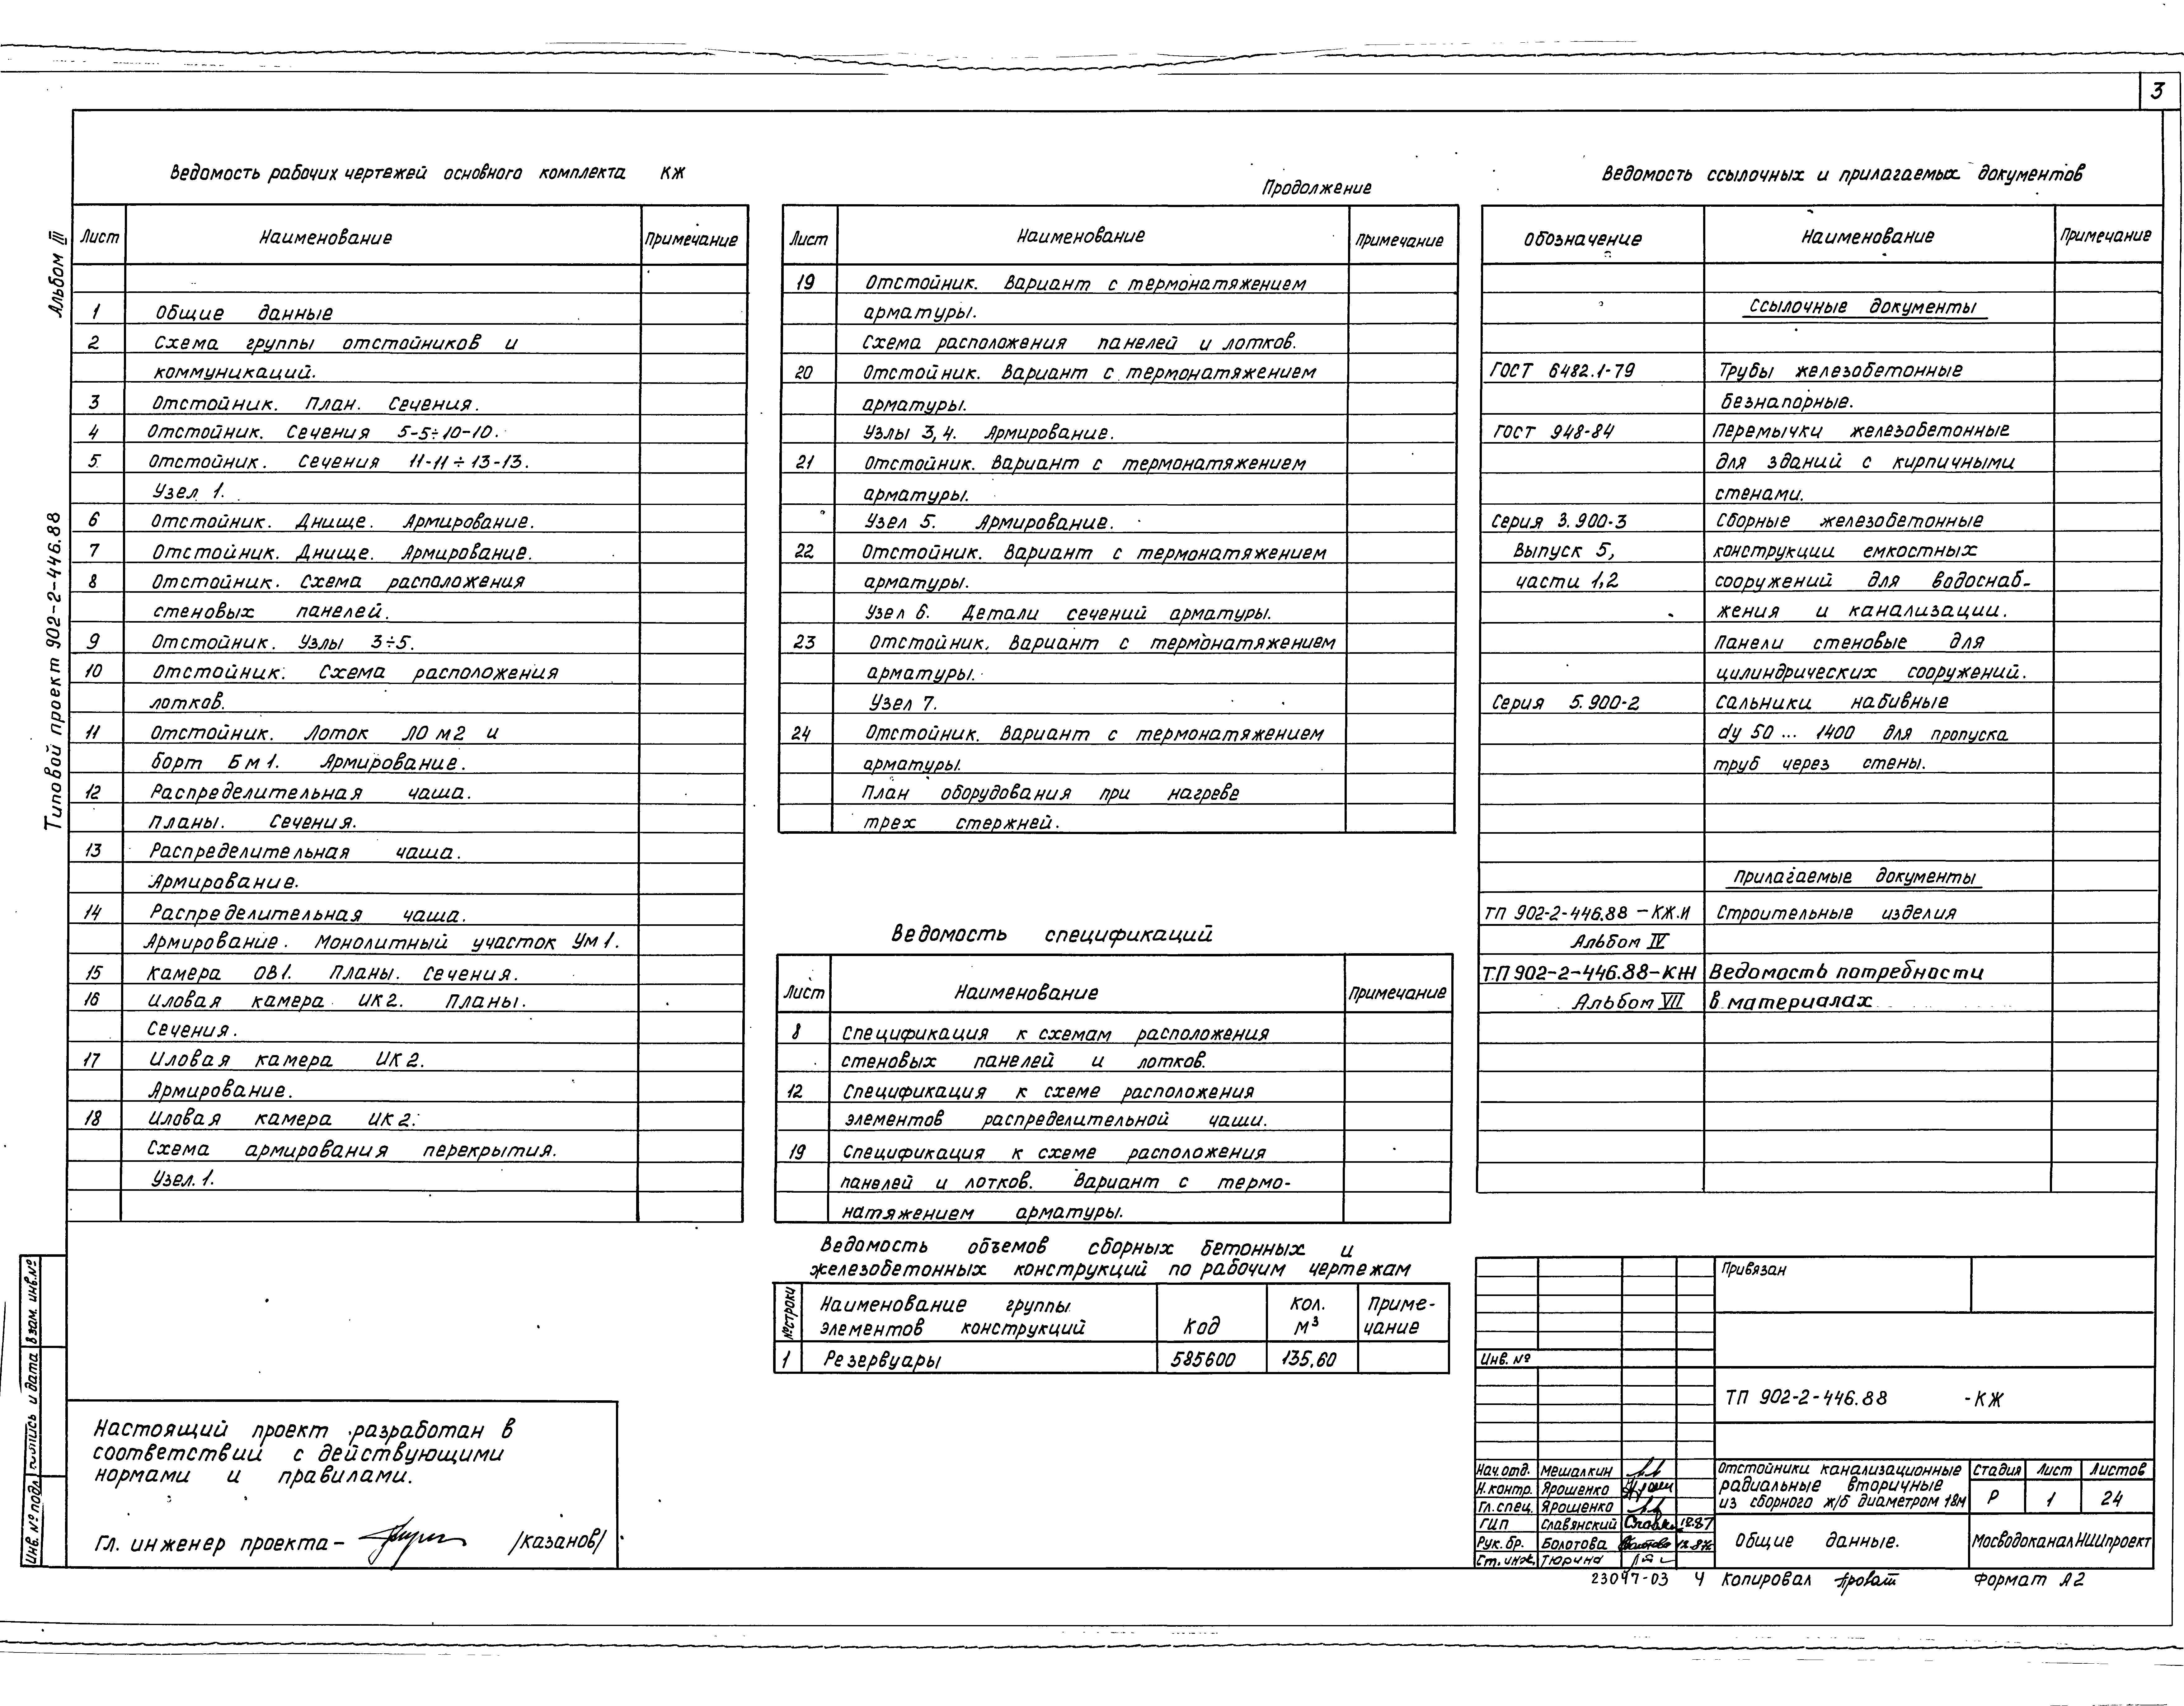 3
Альбом III
Типовой проект 902-2-446.88
Ведомость рабочих чертежей основного комплекта КЖ
Лист Наименование Примечание
1 Общие данные
2 Схема группы отстойников и
коммуникаций.
3 Отстойник. План. Сечения.
4 Отстойник. Сечения 5-5÷10-10.
5 Отстойник. Сечения 11-11÷13-13.
Узел 1.
6 Отстойник. Днище. Армирование.
7 Отстойник. Днище. Армирование.
8 Отстойник. Схема расположения
стеновых панелей.
9 Отстойник. Узлы 3÷5.
10 Отстойник. Схема расположения
лотков.
11 Отстойник. Лоток ЛОм2 и
борт Бм1. Армирование.
12 Распределительная чаша.
Планы. Сечения.
13 Распределительная чаша.
Армирование.
14 Распределительная чаша.
Армирование. Монолитный участок Ум1.
15 Камера ОВ1. Планы. Сечения.
16 Иловая камера ИК2. Планы.
Сечения.
17 Иловая камера ИК2.
Армирование.
18 Иловая камера ИК2.
Схема армирования перекрытия.
Узел.1.
Продолжение
Лист Наименование Примечание
19 Отстойник. Вариант с термонатяжением
арматуры.
Схема расположения панелей и лотков.
20 Отстойник. Вариант с термонатяжением
арматуры.
Узлы 3,4. Армирование.
21 Отстойник. Вариант с термонатяжением
арматуры.
Узел 5. Армирование.
22 Отстойник. Вариант с термонатяжением
арматуры.
Узел 6. Детали сечений арматуры.
23 Отстойник. Вариант с термонатяжением
арматуры.
Узел 7.
24 Отстойник. Вариант с термонатяжением
арматуры.
План оборудования при нагреве
трех стержней.
Ведомость спецификаций
Лист Наименование Примечание
8 Спецификация к схемам расположения
стеновых панелей и лотков.
12 Спецификация к схеме расположения
элементов распределительной чаши.
19 Спецификация к схеме расположения
панелей и лотков. Вариант с термо-
натяжением арматуры.
Ведомость объемов сборных бетонных и
железобетонных конструкций по рабочим чертежам
№ строки Наименование группы элементов конструкций Код Кол. м³ Приме-чание
1 Резервуары 585600 135,60
Ведомость ссылочных и прилагаемых документов
Обозначение Наименование Примечание
Ссылочные документы
ГОСТ 6482.1-79 Трубы железобетонные
безнапорные.
ГОСТ 948-84 Перемычки железобетонные
для зданий с кирпичными
стенами.
Серия 3.900-3 Сборные железобетонные
Выпуск 5, конструкции емкостных
части 1,2 сооружений для водоснаб-
жения и канализации.
Панели стеновые для
цилиндрических сооружений.
Серия 5.900-2 Сальники набивные
dу 50 ... 1400 для пропуска
труб через стены.
Прилагаемые документы
ТП 902-2-446.88-КЖ.И Строительные изделия
Альбом IV
Т.П 902-2-446.88-КЖ Ведомость потребности
Альбом VII в материалах
Настоящий проект разработан в
соответствий с действующими
нормами и правилами.
Гл. инженер проекта - /Казанов/
Инв. № подл. Подпись и дата Взам. инв.№
Привязан
Инв. №
ТП 902-2-446.88 -КЖ
Нач.отд. Мешалкин
Н.контр. Ярошенко
Гл.спец. Ярошенко
ГИП Славянский 12.87
Рук.бр. Болотова 12.87
Ст.инж. Тюрина
Отстойники канализационные
радиальные вторичные
из сборного ж/б диаметром 18м
Стадия Лист Листов
Р 1 24
Общие данные.
МосводоканалНИИпроект
23097-03 4 Копировал Формат А2